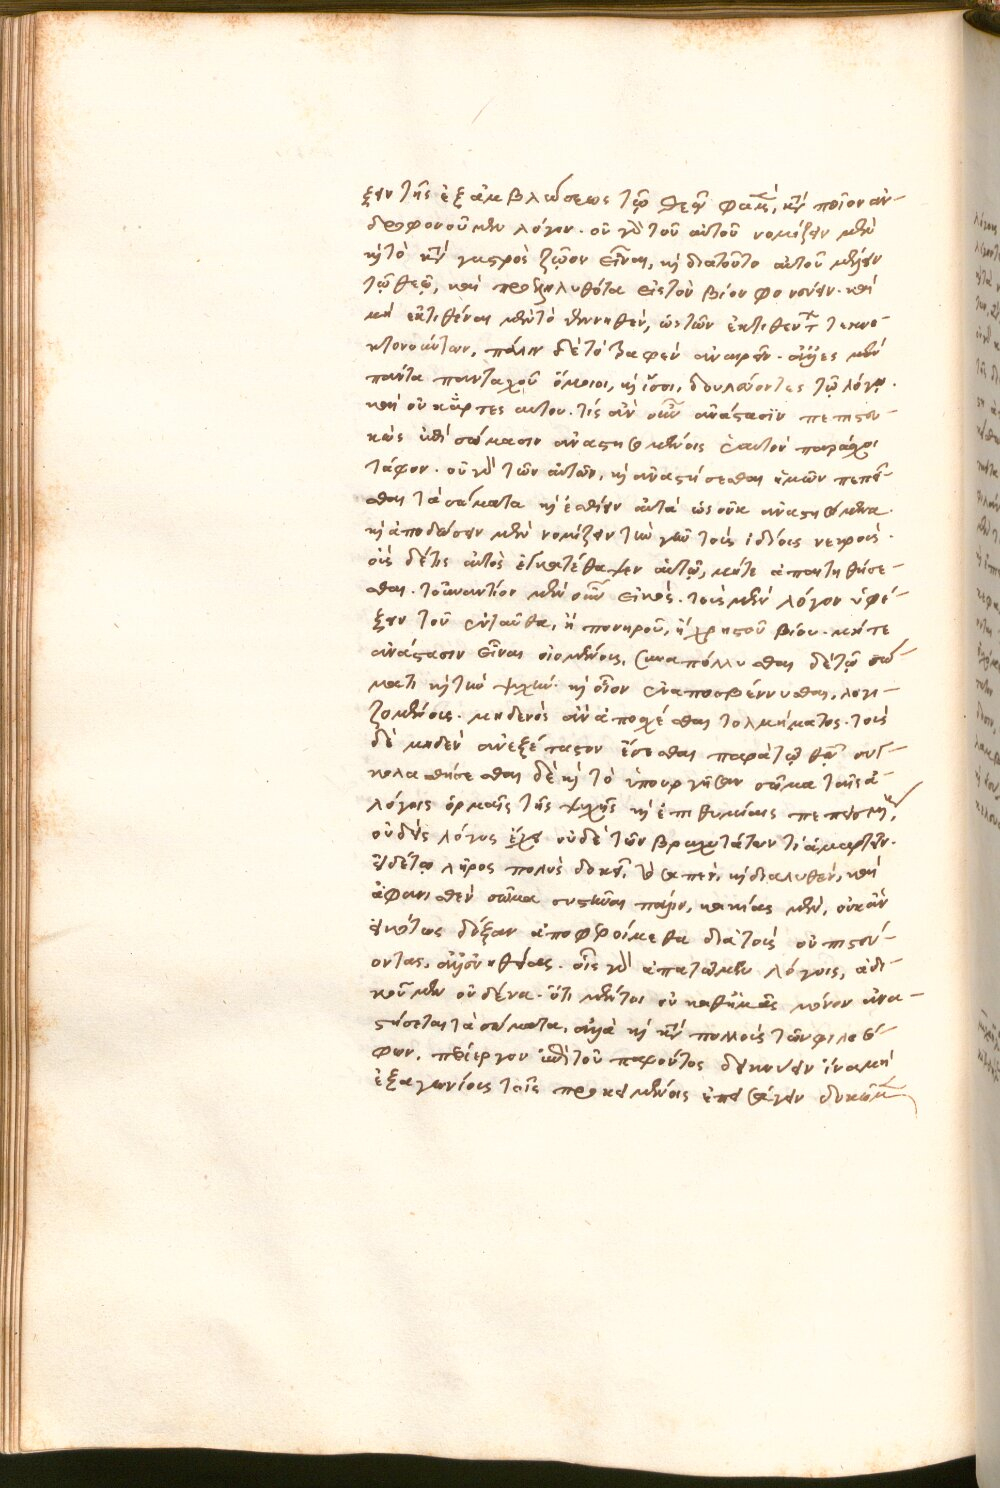 ξειν τῆς ἐξαμβλώσεως τῷ θεῷ φαμὲν, κατὰ ποῖον ἀν-
δροφονοῦμεν λόγον. οὐ γὰρ τοῦ αὐτοῦ νομίζειν μὲν
καὶ τὸ κατὰ γαστρὸς ζῶον εἶναι, καὶ διατοῦτο αὐτοῦ μέλειν
τῷ θεῷ, καὶ προεληλυθότα εἰς τὸν βίον φονεύειν. καὶ
μὴ ἐκτιθέναι μὲν τὸ γεννηθὲν, ὡς τῶν ἐκτιθέντων τεκνο-
κτονούντων, πάλιν δὲ τὸ τραφὲν ἀναιρεῖν. ἀλλ' ἐσμὲν
πάντα πανταχοῦ ὅμοιοι, καὶ ἴσοι, δουλεύοντες τῷ λόγῳ.
καὶ οὐ κρατοῦντες αὐτοῦ. τίς ἂν οὖν ἀνάστασιν πεπιστευ-
κὼς ἐπὶ σώμασιν ἀναστησομένοις ἑαυτὸν παράσχοι
τάφον. οὐ γὰρ τῶν αὐτῶν, καὶ ἀναστήσεσθαι ἡμῶν πεπεῖ-
σθαι τὰ σώματα καὶ ἐσθίειν αὐτὰ ὡς οὐκ ἀναστησόμενα.
καὶ ἀποδώσειν μὲν νομίζειν τὴν γῆν τοὺς ἰδίους νεκρούς.
οὓς δέ τις αὐτὸς ἐγκατέθαψεν αὑτῷ, μήτε ἀπαιτηθήσε-
σθαι. τοὐναντίον μὲν οὖν εἰκὸς. τοὺς μὲν λόγον ὑφέ-
ξειν τοῦ ἐνταῦθα, ἢ πονηροῦ, ἢ χρηστοῦ βίου. μήτε
ἀνάστασιν εἶναι οἰομένους, συναπόλλυσθαι δὲ τῷ σώ-
ματι καὶ τὴν ψυχὴν. καὶ οἷον ἐναποσβέννυσθαι, λογι-
ζομένους. μηδενὸς ἂν ἀποσχέσθαι τολμήματος. τοὺς
δὲ μηδὲν ἀνεξέταστον ἔσεσθαι παρὰ τῷ θεῷ συγ-
κολασθήσεσθαι δὲ καὶ τὸ ὑπουργῆσαν σῶμα ταῖς ἀ-
λόγοις ὁρμαῖς τῆς ψυχῆς καὶ ἐπιθυμίαις πεπεισμένους,
οὐδεὶς λόγος ἔχει οὐδὲ τῶν βραχυτάτων τι ἁμαρτεῖν.
εἰ δέ τῳ λῆρος πολὺς δοκεῖ, τὸ σαπὲν, καὶ διαλυθὲν, καὶ
ἀφανισθὲν σῶμα συστῆναι πάλιν, κακίας μὲν, οὐκ ἂν
εἰκότως δόξαν ἀποφεροίμεθα διὰ τοὺς οὐ πιστεύ-
οντας, ἀλλ' εὐηθείας. οἷς γὰρ ἀπατῶμεν λόγοις, ἀδι-
κοῦμεν οὐδένα. ὅτι μέντοι οὐ καθ' ἡμᾶς μόνον ἀνα-
στήσεται τὰ σώματα, ἀλλὰ καὶ κατὰ πολλοὺς τῶν φιλοσό-
φων, περίεργον ἐπὶ τοῦ παρόντος δεικνύειν ἵνα μὴ
ἐξαγωνίους τοῖς προκειμένοις ἐπεισάγειν δοκῶμεν